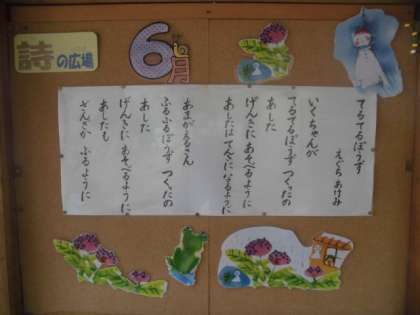 詩の広場
6月
てるてるぼうず
えぐち あけみ
いくちゃんが
てるてるぼうず つくったの
あした
げんきに あそべるように
あしたは てんきに なるように
あまがえるさん
ふるふるぼうず つくったの
あした
げんきに あそべるように
あしたも
ざんざか ふるように